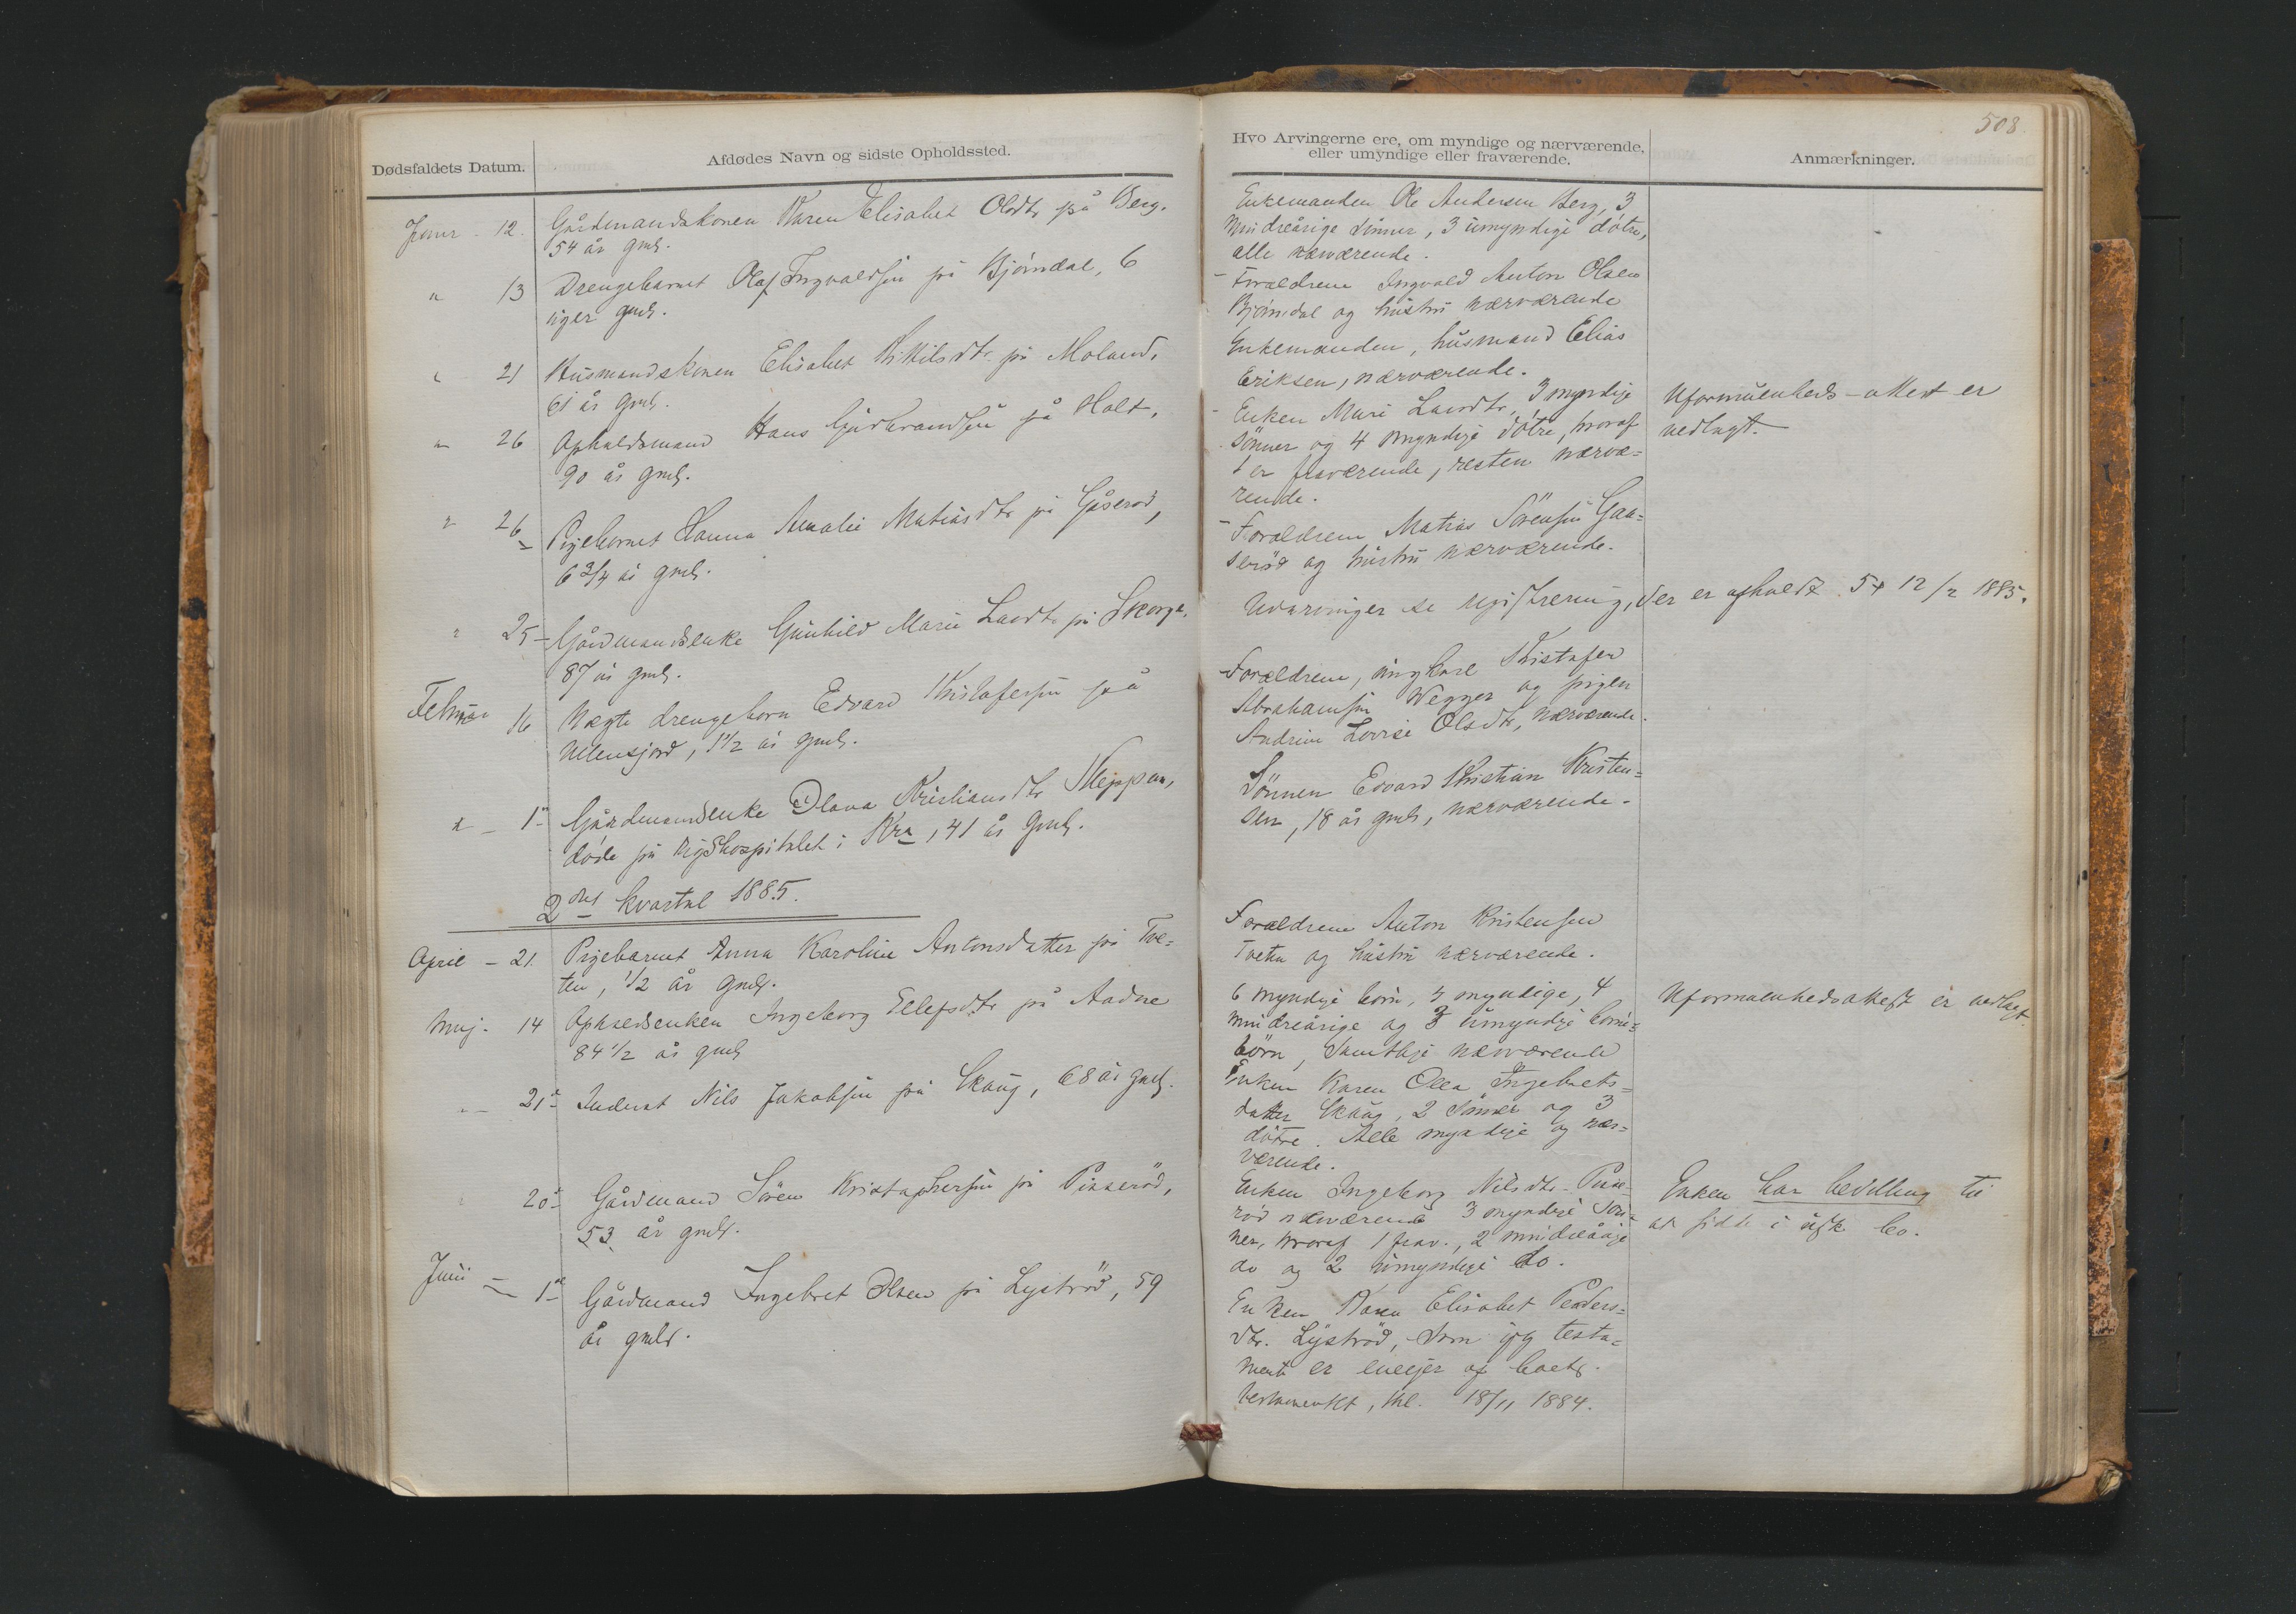 508.
Dødsfaldets Datum.
Afdødes Navn og sidste Opholdssted.
Januar - 12.
Gårdmandskonen Karen Elisabet Olsdtr på Berg,
54 år gml.
" 13
Drengebarnet Olaf Ingvaldsen på Bjørndal, 6
uger gml.
" 21
Husmandskonen Elisabet Kittilsdtr. på Moland,
61 år gml.
" 26
Opholdsmand Hans Gudbrandsen på Holt,
90 år gml.
" 26
Pigebarnet Hanna Amalie Matiasdtr på Gåserød,
6 3/4 år gml.
" 25
Gårdmandsenke Gunhild Marie Larsdtr på Skorge,
87 år gml.
Februar 16
Uægte drengebarn Edvard Kristofersen på
Ullensjord, 1 1/2 år gml.
" - 1
Gårdmandsenke Olava Kristiansdtr Kleppan,
døde på rigshospitalet i Kra, 41 år gml.
2det kvartal 1885.
April - 21.
Pigebarnet Anna Karoline Antonsdatter på Tve=
ten, 1/2 år gml.
Maj. 14
Opholdsenken Ingeborg Ellefsdtr på Aadne
84 1/2 år gml
" - 21
Inderst Nils Jakobsen på Skaug, 68 år gml.
20
Gårdmand Søren Kristophersen på Pisserød,
53 år gml.
Juni - 1
Gårdmand Ingebret Olsen på Lystrød, 59
år gml.
Hvo Arvingerne ere, om myndige og nærværende,
eller umyndige eller fraværende.
Anmærkninger.
Enkemanden Ole Andersen Berg, 3
mindreårige sønner, 3 umyndige døtre,
alle nærværende.
Forældrene Ingvald Anton Olsen
Bjørndal og hustru nærværende
Enkemanden, husmand Elias
Eriksen, nærværende.
Enken Mari Larsdtr, 3 myndige
sønner og 4 myndige døtre, hvoraf
1 er fraværende, resten nærvæ=
rende.
Uformuenheds-attest er
vedlagt.
Forældrene Matias Sørensen Gaa=
serød og hustru nærværende.
Udarvinger se registrering, der er afholdt 54 12/2 1885.
Forældrene, ungkarl Kristofer
Abrahamsen Wegger og pigen
Andrine Lovise Olsdtr, nærværende.
Sønnen Edvard Kristian Kristen=
sen, 18 år gml, nærværende.
Forældrene Anton Kristensen
Tveten og hustru nærværende.
6 myndige børn, 4 myndige, 4
mindreårige og 3 umyndige børne=
børn, samtlige nærværende
Uformuenhedsattest er vedlagt.
Enken Karen Olea Ingebrets=
datter Skaug, 2 sønner og 3
døtre. Alle myndige og nær=
værende.
Enken Ingeborg Nilsdtr. Pisse=
rød nærværende 3 myndige søn=
ner, hvoraf 1 frav., 2 mindreårige
do og 2 umyndige do.
Enken har bevilling til
at sidde i usk. bo.
Enken Karen Elisabet Peders=
dtr. Lystrød, som ifg testa=
ment er eneejer af boets.
testamentet, thl. 18/11 1884.